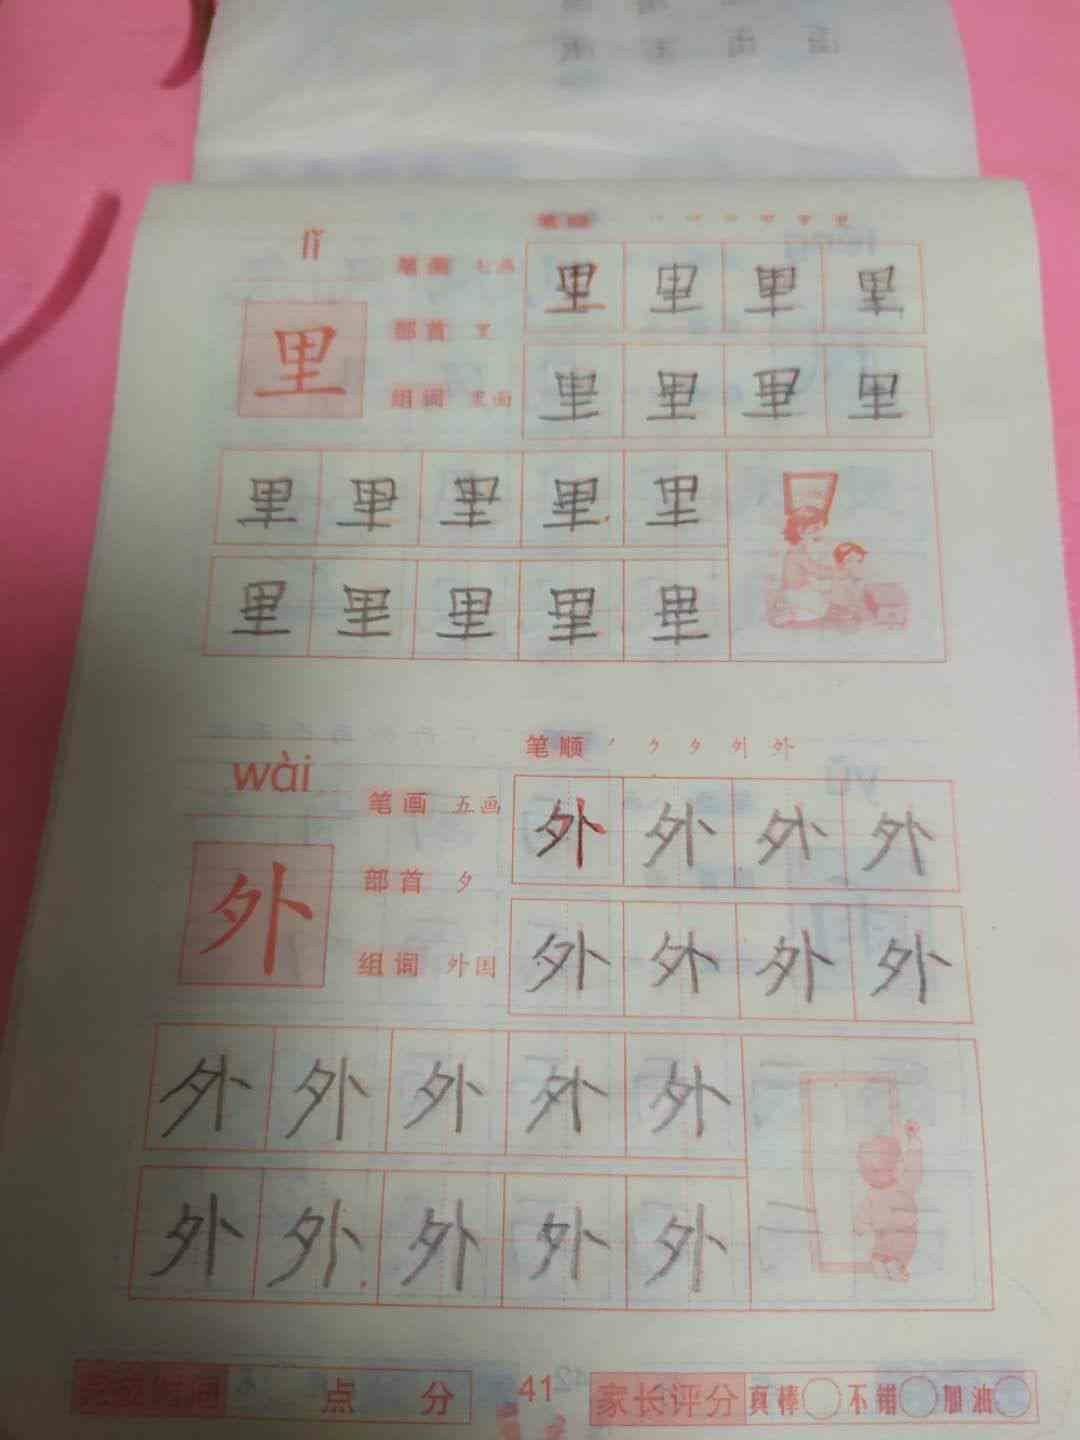 lǐ
笔顺
笔画 七画
里 里 里 里
里
部首 里
组词 里面
里 里 里 里
里 里 里 里 里
里 里 里 里 里
wài
笔顺 丿 ク 夕 外 外
笔画 五画
外 外 外 外
外
部首 夕
组词 外国
外 外 外 外
外 外 外 外 外
外 外 外 外 外
完成时间 点 分 41 家长评分 真棒 不错 加油